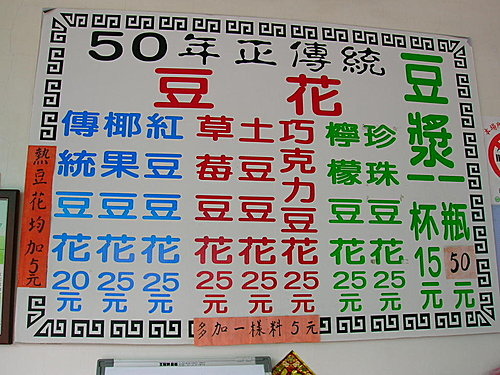 50年正傳統
豆花
豆漿
一瓶50元
一杯15元
珍珠豆花25元
檸檬豆花25元
巧克力豆花25元
土豆豆花25元
草莓豆花25元
紅豆豆花25元
椰果豆花25元
傳統豆花20元
熱豆花均加5元
多加一樣料5元